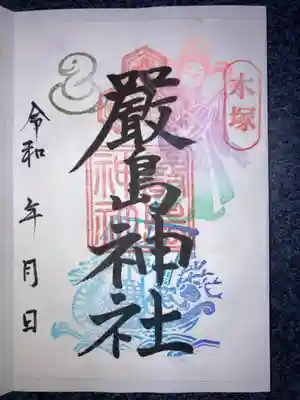 木塚
嚴島神社
令和 年 月 日